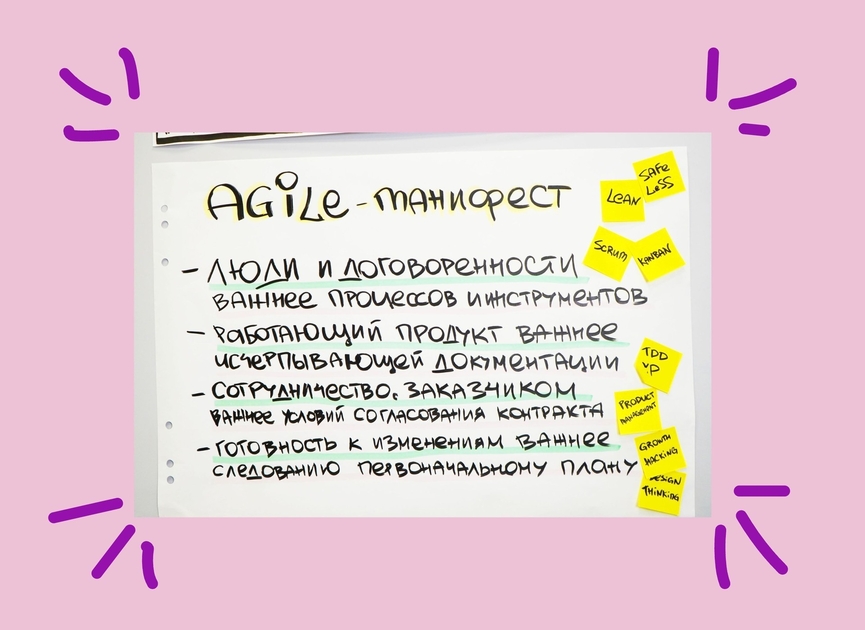 AGiLe - МАНИФЕСТ
SAFe
LeSS
LeAN
SCRUM
KANBAN
- ЛЮДИ И ДОГОВОРЕННОСТИ
ВАЖНЕЕ ПРОЦЕССОВ И ИНСТРУМЕНТОВ
- РАБОТАЮЩИЙ ПРОДУКТ ВАЖНЕЕ
ИСЧЕРПЫВАЮЩЕЙ ДОКУМЕНТАЦИИ
- СОТРУДНИЧЕСТВО с ЗАКАЗЧИКОМ
ВАЖНЕЕ УСЛОВИЙ СОГЛАСОВАНИЯ КОНТРАКТА
- ГОТОВНОСТЬ К ИЗМЕНЕНИЯМ ВАЖНЕЕ
СЛЕДОВАНИЮ ПЕРВОНАЧАЛЬНОМУ ПЛАНУ
TDD
XP
PRODUCT
MANAGEMENT
GROWTH
HACKiNG
DESIGN
THiNKiNG